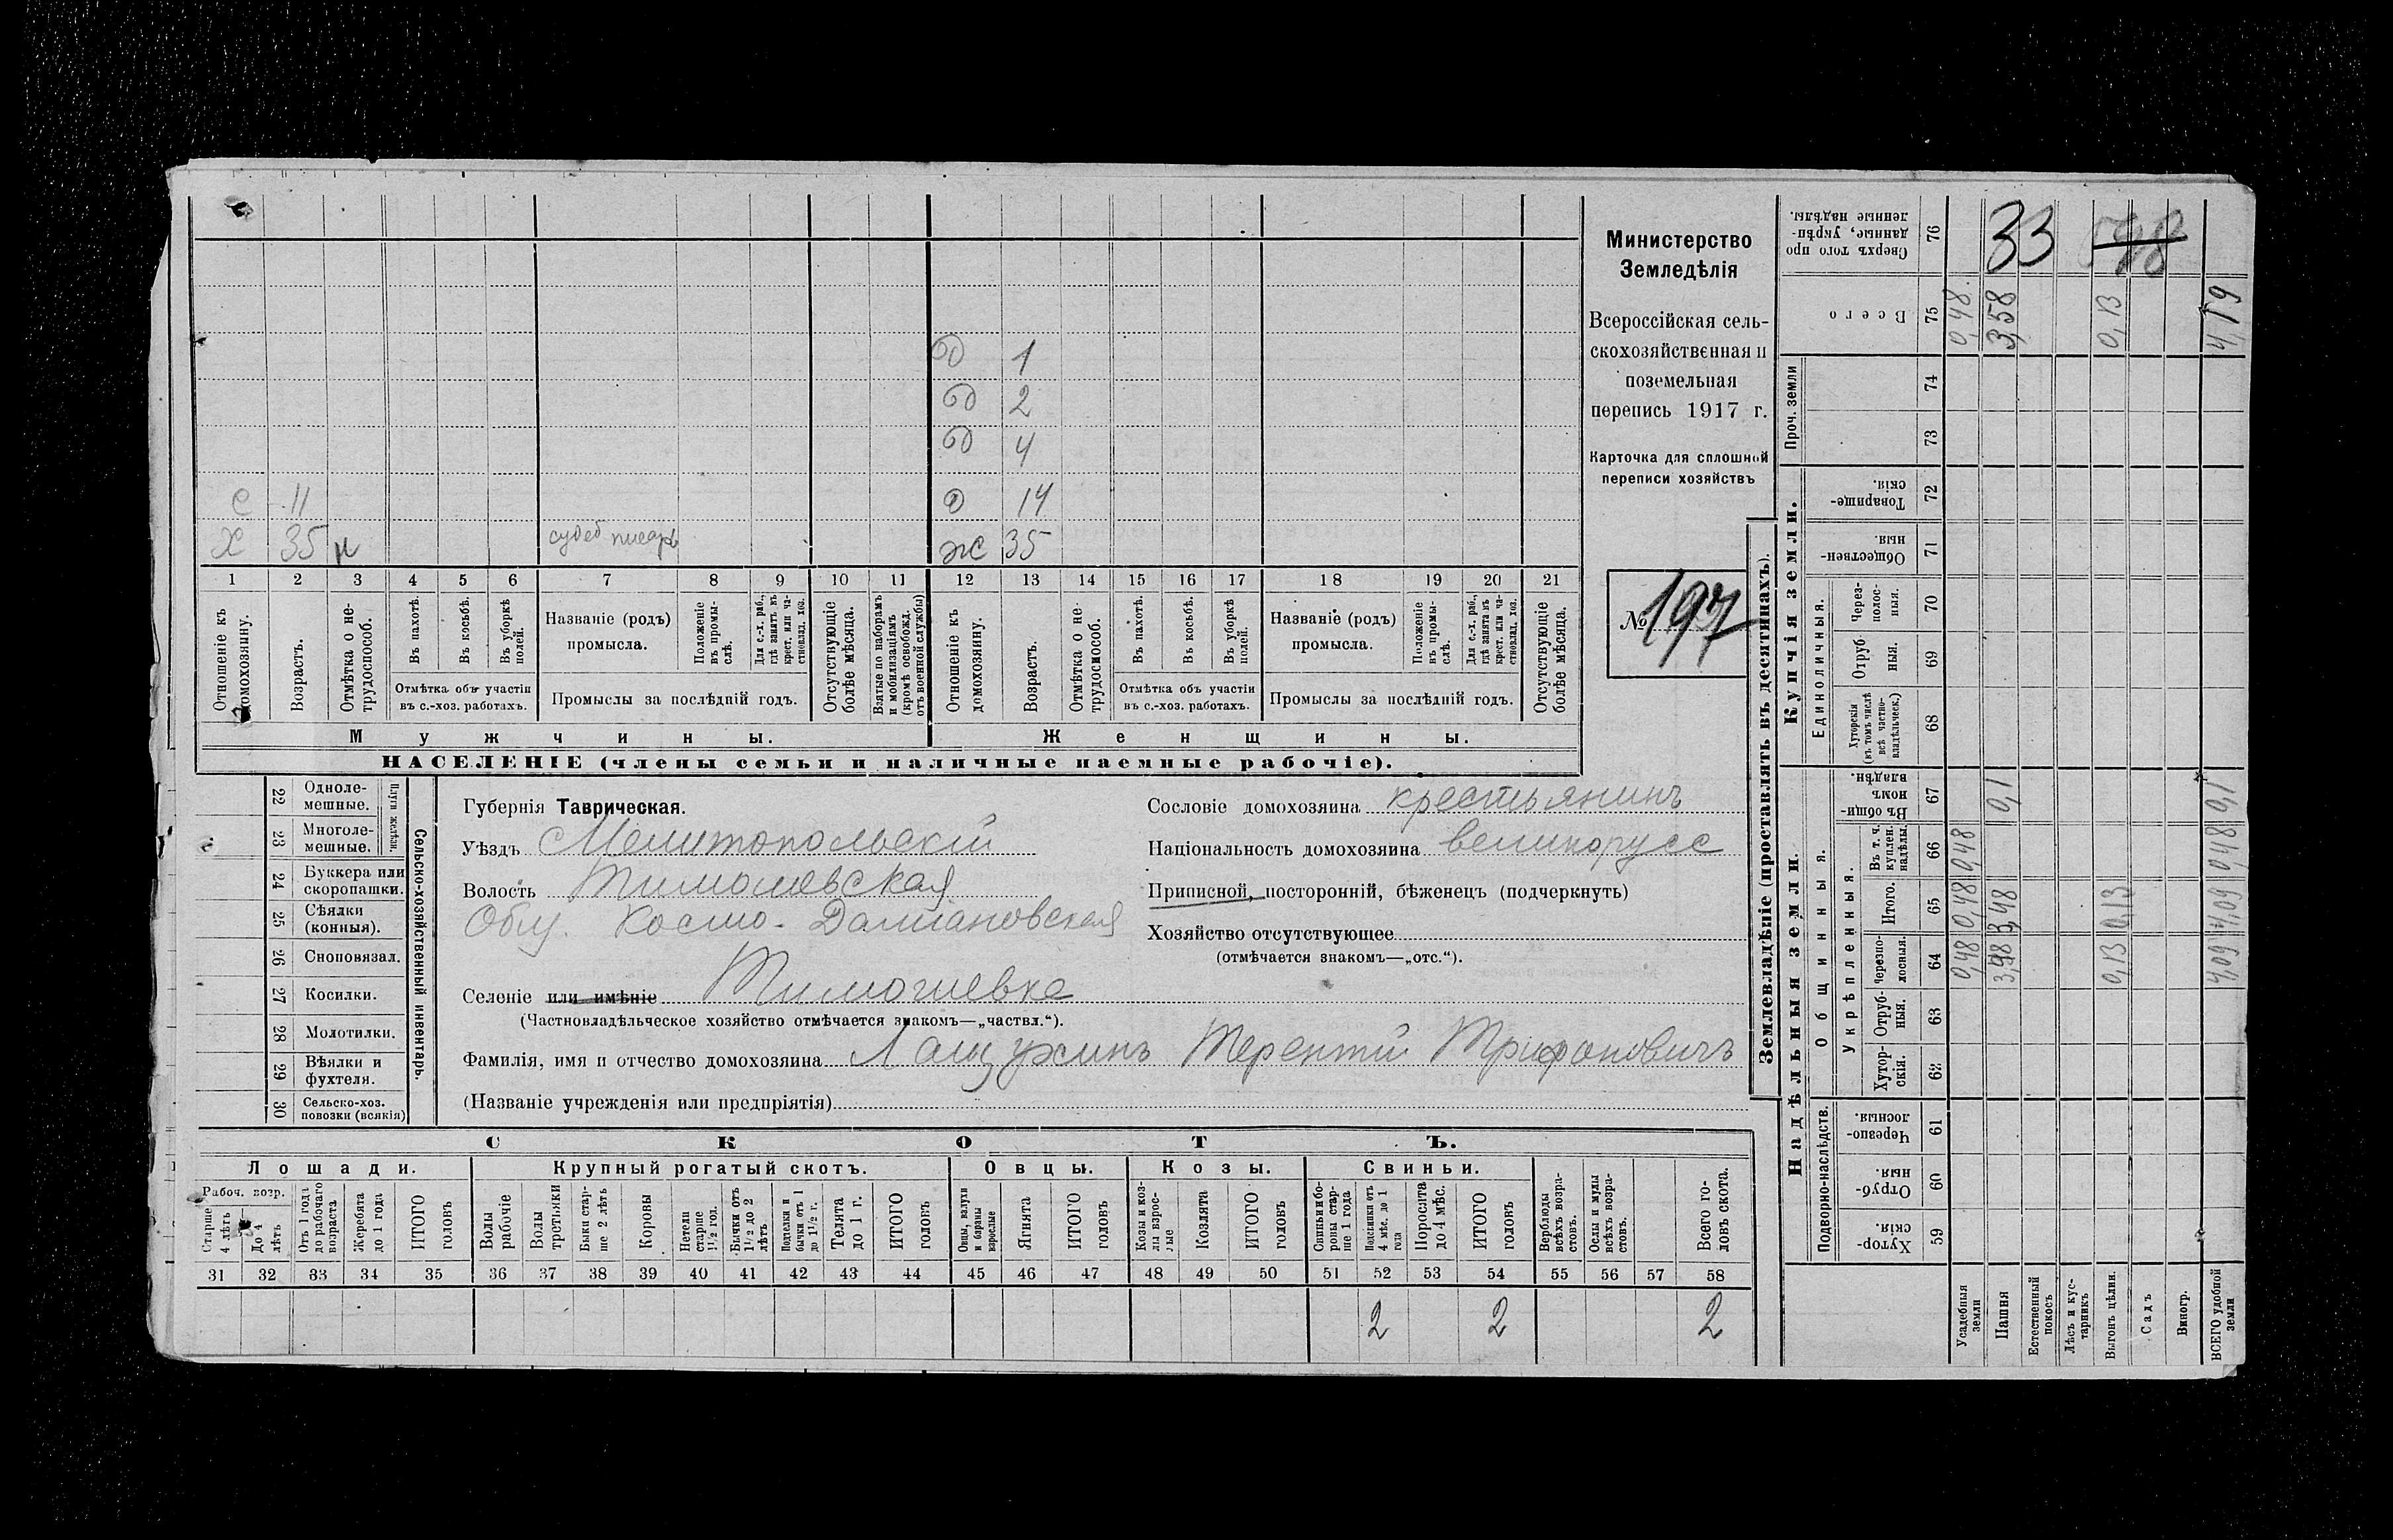 Д 1
Д 2
Д 4
С 11 Д 14
Х 35 н судеб писарь Ж 35
1 2 3 4 5 6 7 8 9 10 11 12 13 14 15 16 17 18 19 20 21
Отношеніе къ домохозяину.
Возрастъ.
Отмѣтка о не-
трудоспособ.
Въ пахотѣ.
Въ косьбѣ.
Въ уборкѣ полей.
Отмѣтка объ участіи
въ с.-хоз. работахъ.
Названіе (родъ)
промысла.
Положеніе въ промы-
слѣ.
Для с.-х. раб., гдѣ занятъ въ крест. или ча-
стновлад. хоз.
Промыслы за послѣдній годъ.
Отсутствующіе болѣе мѣсяца.
Взятые по наборамъ и мобилизаціямъ (кромѣ освобожд. отъ военной службы)
Отношеніе къ домохозяину.
Возрастъ.
Отмѣтка о не-
трудоспособ.
Въ пахотѣ.
Въ косьбѣ.
Въ уборкѣ полей.
Отмѣтка объ участіи
въ с.-хоз. работахъ.
Названіе (родъ)
промысла.
Положеніе въ промы-
слѣ.
Для с.-х. раб., гдѣ занята въ крест. или ча-
стновлад. хоз.
Промыслы за послѣдній годъ.
Отсутствующіе болѣе мѣсяца.
Мужчины. Женщины.
НАСЕЛЕНІЕ (члены семьи и наличные наемные рабочіе).
Министерство
Земледѣлія
Всероссійская сель-
скохозяйственная и
поземельная
перепись 1917 г.
Карточка для сплошной
переписи хозяйствъ
№ 197
22 Одноле-
мешные.
23 Многоле-
мешные.
Плуги желѣзн.
24 Буккера или
скоропашки.
25 Сѣялки
(конныя).
26 Сноповязал.
27 Косилки.
28 Молотилки.
29 Вѣялки и
фухтеля.
30 Сельско-хоз.
повозки (всякія)
Сельско-хозяйственный инвентарь.
Губернія Таврическая.
Уѣздъ Мелитопольскій
Волость Тимошевская
Общ. Космо-Даміановская
Селеніе или имѣніе Тимошевка
(Частновладѣльческое хозяйство отмѣчается знакомъ—„частвл.“).
Фамилія, имя и отчество домохозяина Лащухинъ Терентій Трифоновичъ
(Названіе учрежденія или предпріятія)
Сословіе домохозяина крестьянинъ
Національность домохозяина великорусс
Приписной, посторонній, бѣженецъ (подчеркнуть)
Хозяйство отсутствующее
(отмѣчается знакомъ—„отс.“).
СКОТЪ.
Лошади. Крупный рогатый скотъ. Овцы. Козы. Свиньи.
Рабоч. возр.
Старше 4 лѣтъ
До 4 лѣтъ
Отъ 1 года до рабочаго возраста
Жеребята до 1 года
ИТОГО головъ
Волы рабочіе
Волы третьяки
Быки стар-
ше 2 лѣтъ
Коровы
Нетели старше 1½ год.
Бычки отъ 1½ до 2 лѣтъ
Подтелки и бычки отъ 1 до 1½ г.
Телята до 1 г.
ИТОГО головъ
Овцы, валухи и бараны взрослые
Ягнята
ИТОГО головъ
Козы и коз-
лы взрос-
лые
Козлята
ИТОГО головъ
Свиньи и бо-
ровы стар-
ше 1 года
Подсвинки отъ 4 мѣс. до 1 года
Поросята до 4 мѣс.
ИТОГО головъ
Верблюды всѣхъ возра-
стовъ.
Ослы и мулы всѣхъ возра-
стовъ.
Всего го-
ловъ скота.
31 32 33 34 35 36 37 38 39 40 41 42 43 44 45 46 47 48 49 50 51 52 53 54 55 56 57 58
2 2 2
Землевладѣніе (проставлять въ десятинахъ).
Надѣльныя земли. Купчія земли. Проч. земли
Подворно-наслѣдств. Общинныя. Единоличныя.
Укрѣпленныя.
Хутор-
скія. 59
Отруб-
ныя. 60
Черезпо-
лосныя. 61
Хутор-
скія. 62
Отруб-
ныя. 63
Черезпо-
лосныя. 64
Итого. 65
Въ т. ч. куплен. надѣлы. 66
Въ общи-
номъ владѣн. 67
Хуторскія (въ томъ числѣ всѣ частно-
владѣльческ.) 68
Отруб-
ныя. 69
Через-
полос-
ныя. 70
Обществен-
ныя. 71
Товарище-
скія. 72
73
74
Всего 75
Сверхъ того про
данные, укрѣп-
ленные надѣлы. 76
Усадебныя земли 0,48 0,48 0,48 0,48
Пашня 3,48 3,48 0,1 3,58
Естественный покосъ
Лѣсъ и кус-
тарникъ
Выгонъ цѣлин. 0,13 0,13 0,13
Садъ
Виногр.
ВСЕГО удобной земли 4,09 4,09 0,48 0,1 4,19
33